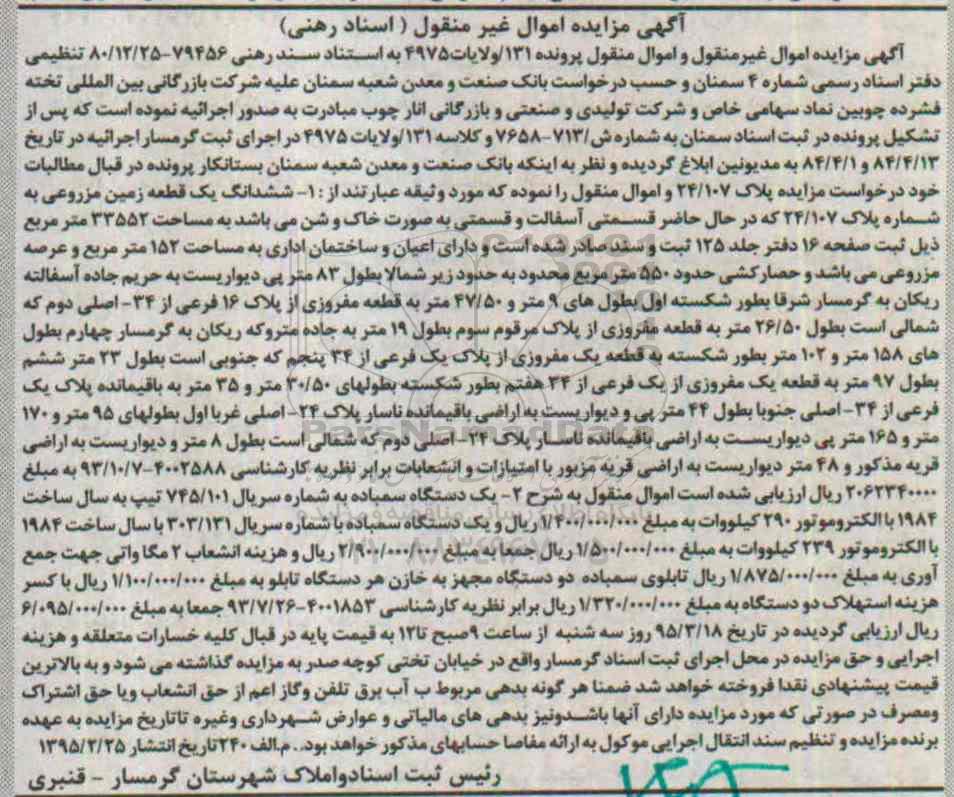 آگهی مزایده اموال غیر منقول ( اسناد رهنی)
آگهی مزایده اموال غیرمنقول و اموال منقول پرونده ۱۳۱/ولایات۴۹۷۵ به استناد سند رهنی ۷۹۴۵۶-۸۰/۱۲/۲۵ تنظیمی
دفتر اسناد رسمی شماره ۴ سمنان و حسب درخواست بانک صنعت و معدن شعبه سمنان علیه شرکت بازرگانی بین المللی تخته
فشرده چوبین نماد سهامی خاص و شرکت تولیدی و صنعتی و بازرگانی انار چوب مبادرت به صدور اجرائیه نموده است که پس از
تشکیل پرونده در ثبت اسناد سمنان به شماره ش/۷۱۳-۷۶۵۸ و کلاسه ۱۳۱/ولایات ۴۹۷۵ در اجرای ثبت گرمسار اجرائیه در تاریخ
۸۴/۴/۱۳ و ۸۴/۴/۱ به مدیونین ابلاغ گردیده و نظر به اینکه بانک صنعت و معدن شعبه سمنان بستانکار پرونده در قبال مطالبات
خود درخواست مزایده پلاک ۲۴/۱۰۷ و اموال منقول را نموده که مورد وثیقه عبارتند از : ۱- ششدانگ یک قطعه زمین مزروعی به
شماره پلاک ۲۴/۱۰۷ که در حال حاضر قسمتی آسفالت و قسمتی به صورت خاک و شن می باشد به مساحت ۳۳۵۵۲ متر مربع
ذیل ثبت صفحه ۱۶ دفتر جلد ۱۲۵ ثبت و سند صادر شده است و دارای اعیان و ساختمان اداری به مساحت ۱۵۲ متر مربع و عرصه
مزروعی می باشد و حصارکشی حدود ۵۵۰ متر مربع محدود به حدود زیر شمالا بطول ۸۳ متر پی دیواریست به حریم جاده آسفالته
ریکان به گرمسار شرقا بطور شکسته اول بطول های ۹ متر و ۴۷/۵۰ متر به قطعه مفروزی از پلاک ۱۶ فرعی از ۳۴- اصلی دوم که
شمالی است بطول ۲۶/۵۰ متر به قطعه مفروزی از پلاک مرقوم سوم بطول ۱۹ متر به جاده متروکه ریکان به گرمسار چهارم بطول
های ۱۵۸ متر و ۱۰۲ متر بطور شکسته به قطعه یک مفروزی از پلاک یک فرعی از ۳۴ پنجم که جنوبی است بطول ۲۳ متر ششم
بطول ۹۷ متر به قطعه یک مفروزی از یک فرعی از ۳۴ هفتم بطور شکسته بطولهای ۳۰/۵۰ متر و ۳۵ متر به باقیمانده پلاک یک
فرعی از ۳۴- اصلی جنوبا بطول ۴۴ متر پی و دیواریست به اراضی باقیمانده ناسار پلاک ۲۴- اصلی غربا اول بطولهای ۹۵ متر و ۱۷۰
متر و ۱۶۵ متر پی دیواریست به اراضی باقیمانده ناسار پلاک ۲۴- اصلی دوم که شمالی است بطول ۸ متر و دیواریست به اراضی
قریه مذکور و ۴۸ متر دیواریست به اراضی قریه مزبور با امتیازات و انشعابات برابر نظریه کارشناسی ۴۰۰۲۵۸۸-۹۳/۱۰/۷ به مبلغ
۲۰۶۲۳۴۰۰۰۰ ریال ارزیابی شده است اموال منقول به شرح ۲- یک دستگاه سمباده به شماره سریال ۷۴۵/۱۰۱ تیپ به سال ساخت
۱۹۸۴ با الکتروموتور ۲۹۰ کیلووات به مبلغ ۱/۴۰۰/۰۰۰/۰۰۰ ریال و یک دستگاه سمباده با شماره سریال ۳۰۳/۱۳۱ با سال ساخت ۱۹۸۴
با الکتروموتور ۲۳۹ کیلووات به مبلغ ۱/۵۰۰/۰۰۰/۰۰۰ ریال جمعا به مبلغ ۲/۹۰۰/۰۰۰/۰۰۰ ریال و هزینه انشعاب ۲ مگا واتی جهت جمع
آوری به مبلغ ۱/۸۷۵/۰۰۰/۰۰۰ ریال تابلوی سمباده دو دستگاه مجهز به خازن هر دستگاه تابلو به مبلغ ۱/۱۰۰/۰۰۰/۰۰۰ ریال با کسر
هزینه استهلاک دو دستگاه به مبلغ ۱/۳۲۰/۰۰۰/۰۰۰ ریال برابر نظریه کارشناسی ۴۰۰۱۸۵۳-۹۳/۷/۲۶ جمعا به مبلغ ۶/۰۹۵/۰۰۰/۰۰۰
ریال ارزیابی گردیده در تاریخ ۹۵/۳/۱۸ روز سه شنبه از ساعت ۹صبح تا۱۲ به قیمت پایه در قبال کلیه خسارات متعلقه و هزینه
اجرایی و حق مزایده در محل اجرای ثبت اسناد گرمسار واقع در خیابان تختی کوچه صدر به مزایده گذاشته می شود و به بالاترین
قیمت پیشنهادی نقدا فروخته خواهد شد ضمنا هر گونه بدهی مربوط ب آب برق تلفن وگاز اعم از حق انشعاب ویا حق اشتراک
ومصرف در صورتی که مورد مزایده دارای آنها باشدونیز بدهی های مالیاتی و عوارض شهرداری وغیره تاتاریخ مزایده به عهده
برنده مزایده و تنظیم سند انتقال اجرایی موکول به ارائه مفاصا حسابهای مذکور خواهد بود. . م.الف ۲۴۰تاریخ انتشار ۱۳۹۵/۲/۲۵
رئیس ثبت اسنادواملاک شهرستان گرمسار - قنبری
ParsNamadData